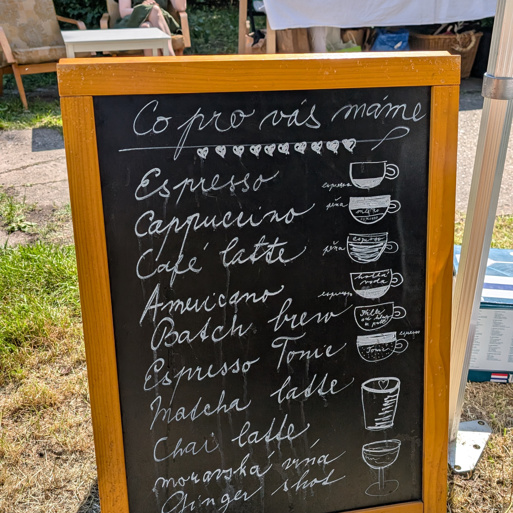 Co pro vás máme
Espresso
espresso
Cappuccino
pěna
mléko
Café latte
espresso
pěna
Americano
horká
voda
espresso
Batch brew
Espresso Tonic
espresso
Tonic
Matcha latte
Chai latte
moravská vína
Ginger shot